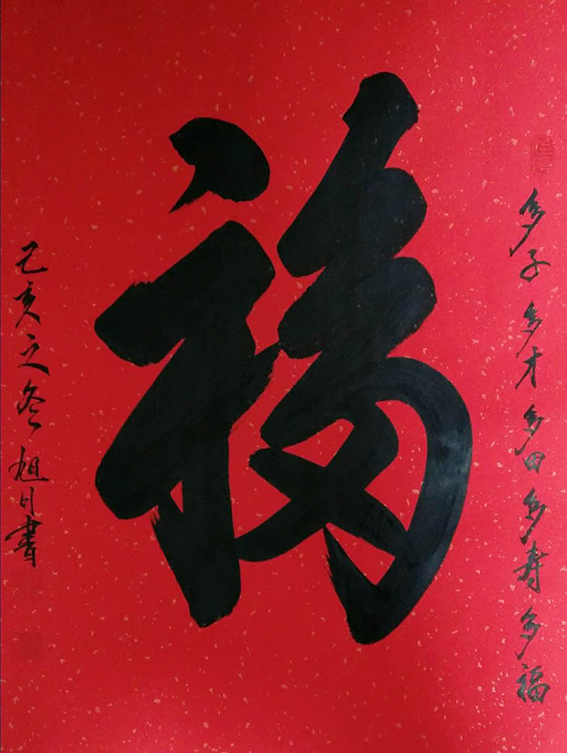 多子多才多田多寿多福
福
己亥之冬旭日書